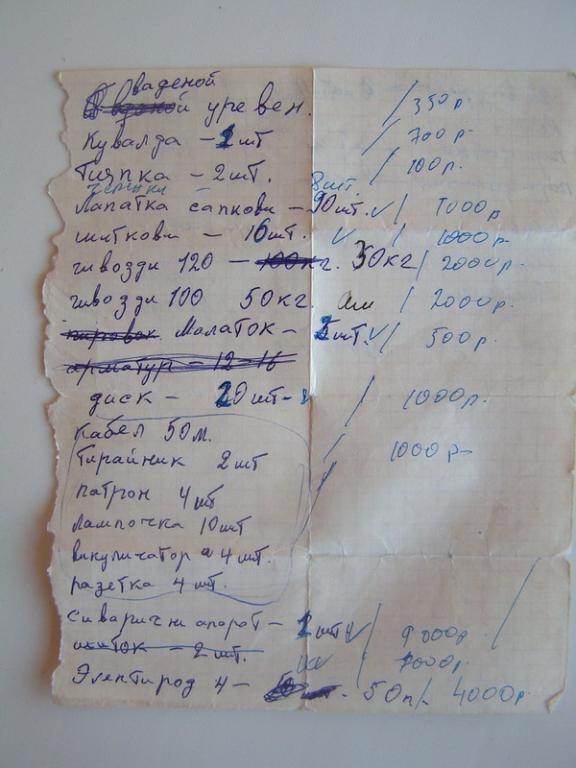 ваденой
уревен. / 350р
Кувалда - 1шт / 700р.
Тияпка - 2шт. / 100р.
Лапатка сапкови - 90шт. √ / 1000р
шиткови - 16шт. √ / 1000р.
гивозди 120 - 100кг. 30кг / 2000р.
гивозди 100 50кг. / 2000р.
Малаток - 2шт. √ / 500р.
арматур - 12-16
диск - 20шт - / 1000р.
кабел 50м.
тирайник 2шт / 1000р
патрон 4шт
лампочка 10шт
викуличатор 4шт.
разетка 4шт.
сиваричи апорот - 1шт √ / 9000р
шиток - 2шт. 1000р.
Электирод 4 - 50п/. 4000р.